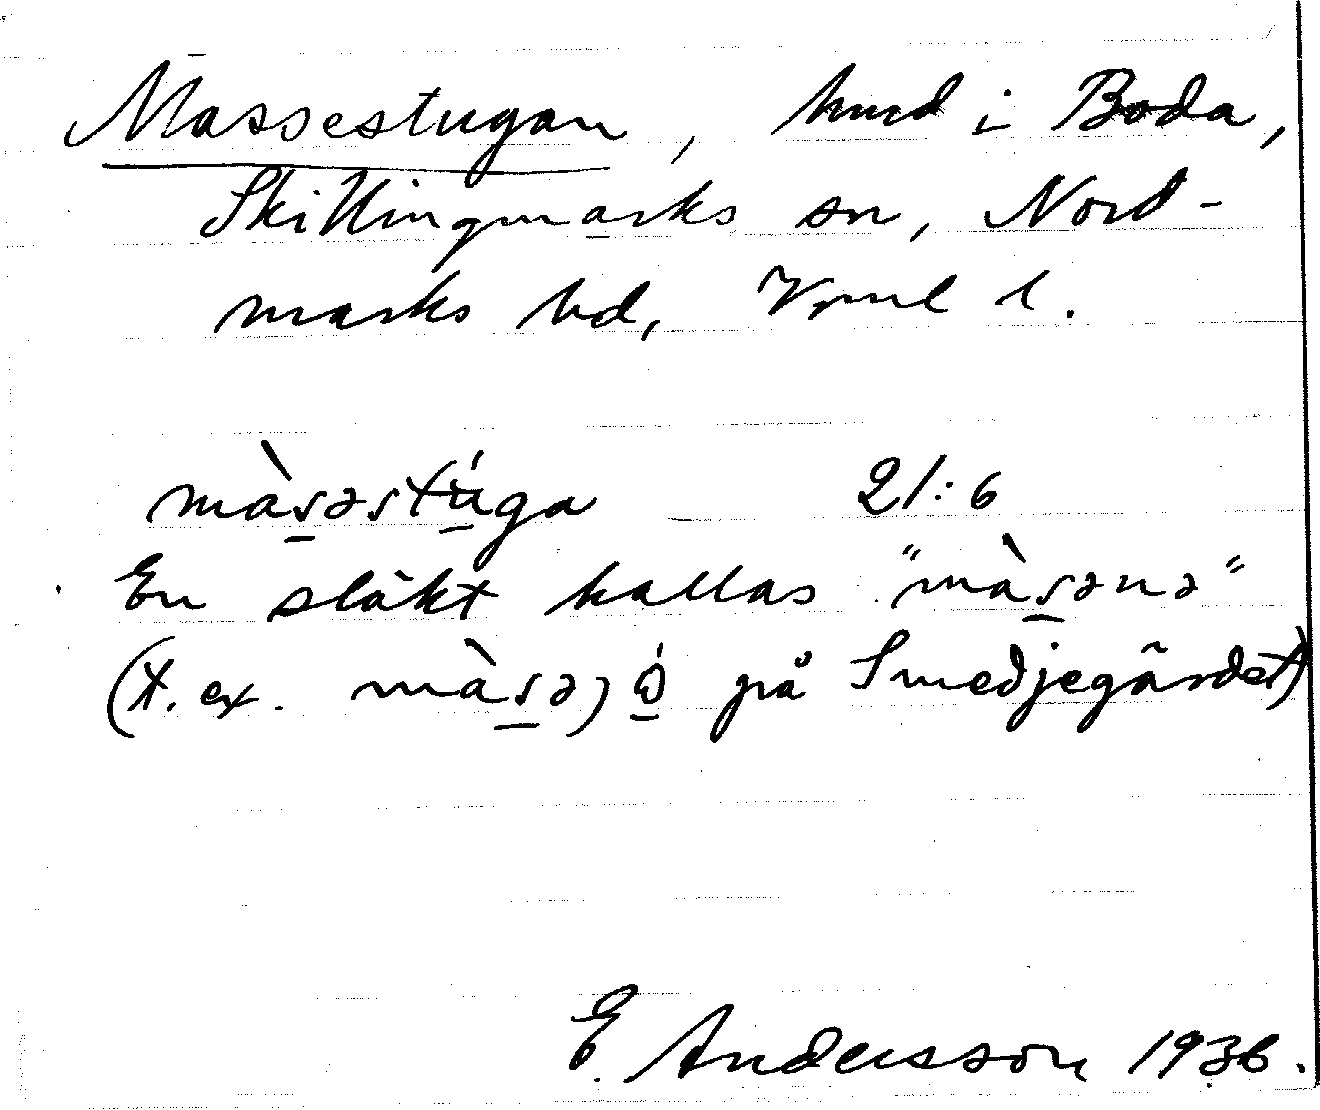 Massestugan, hmd i Boda,
Skillingmarks sn, Nord-
marks hd, Vrml l.
màsəstúga 21:6
En släkt kallas "màsənə"
(t. ex. màsə) på Smedjegärdet)
E. Andersson 1936.